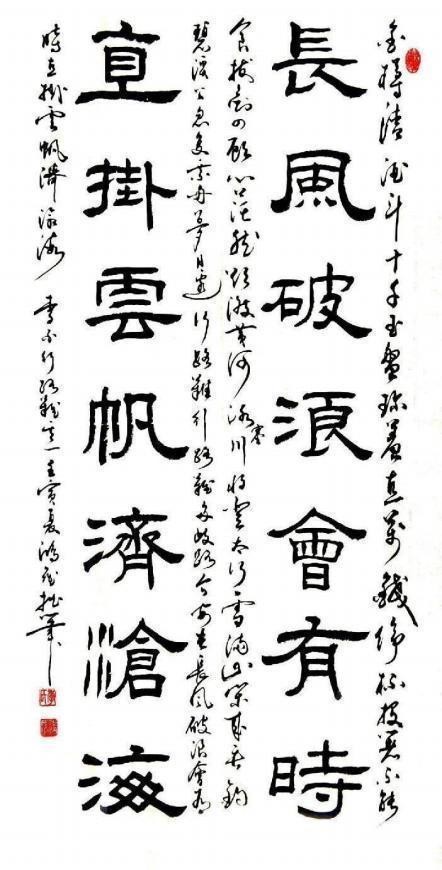 金樽清酒斗十千玉盤珍羞直萬錢停杯投箸不能
長風破浪會有時
食拔劍四顧心茫然欲渡黃河冰塞川將登太行雪滿山閑來垂釣
碧溪上忽復乘舟夢日邊行路難行路難多歧路今安在長風破浪會有
直掛雲帆濟滄海
時直掛雲帆濟滄海 李白行路難 壬寅夏鴻拙筆